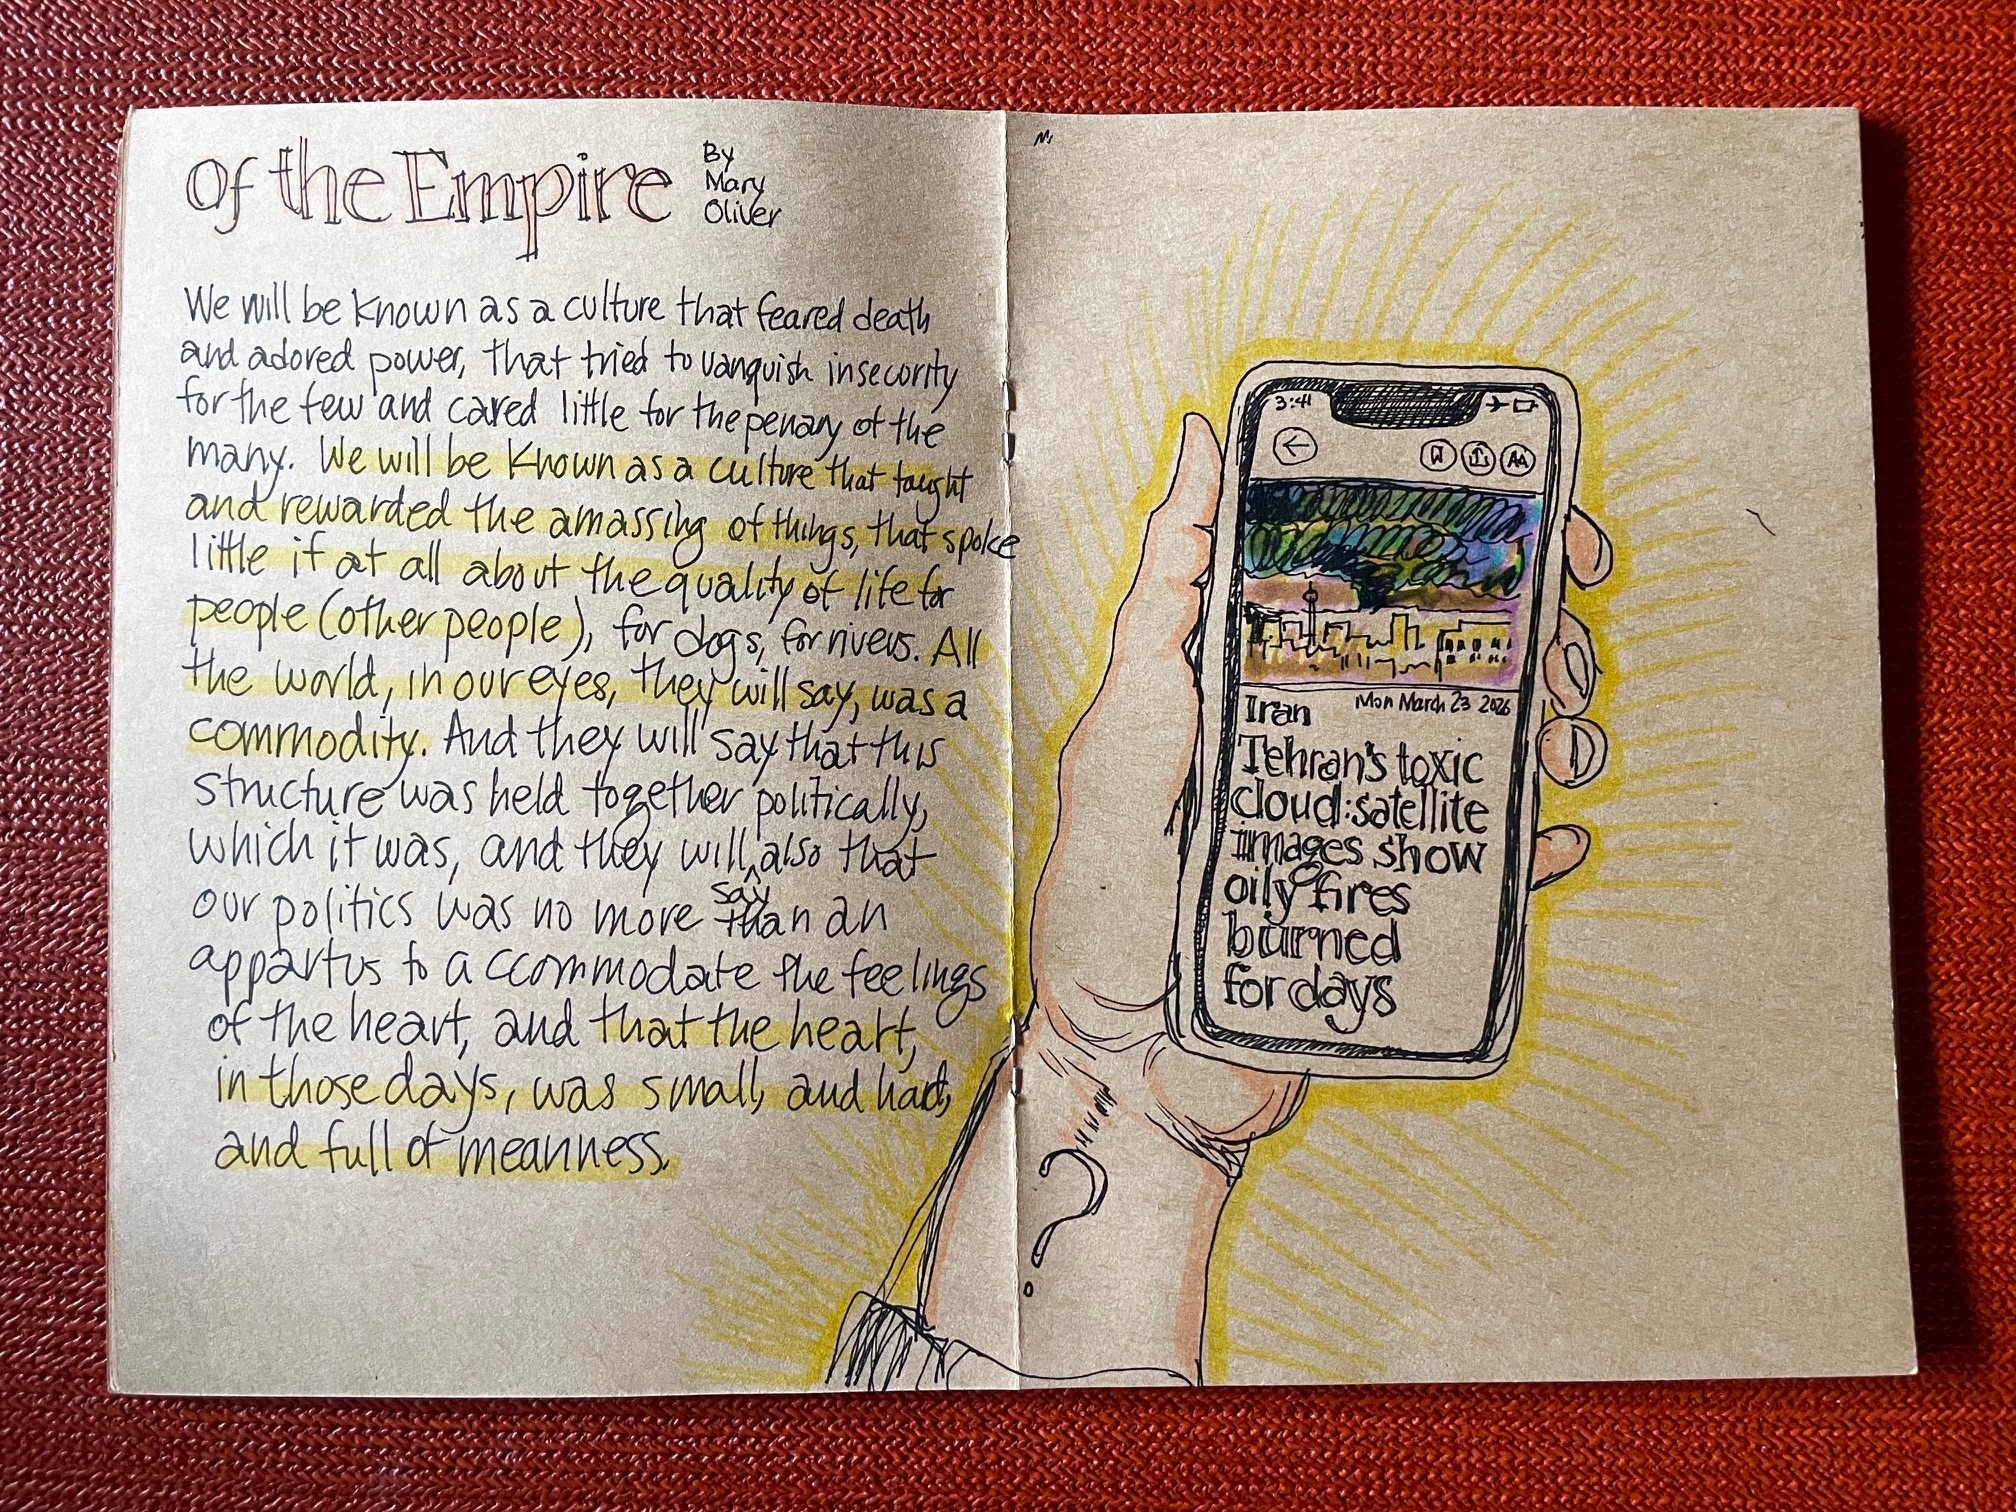 Of the Empire
By
Mary
Oliver
We will be known as a culture that feared death
and adored power, that tried to vanquish insecurity
for the few and cared little for the penary of the
many. We will be known as a culture that taught
and rewarded the amassing of things, that spoke
little if at all about the quality of life for
people (other people), for dogs, for rivers. All
the world, in our eyes, they will say, was a
commodity. And they will say that this
structure was held together politically,
which it was, and they will say also that
our politics was no more than an
appartus to accommodate the feelings
of the heart, and that the heart,
in those days, was small, and hard,
and full of meanness.
3:41
AA
Mon March 23 2026
Iran
Tehran's toxic
cloud: satellite
images show
oily fires
burned
for days
?